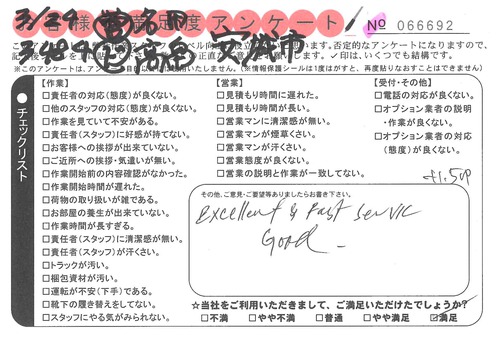 お客様満足度アンケート
No 066692
3/29
安城市
※このアンケートは、
(※情報保護シールは1度はがすと、再度貼りなおすことはできません)
●チェックリスト
【作業】
□責任者の対応(態度)が良くない。
□他のスタッフの対応(態度)が良くない。
□作業を見ていて不安がある。
□責任者(スタッフ)に好感が持てない。
□お客様への挨拶が出来ていない。
□ご近所への挨拶・気遣いが無い。
□作業開始前の内容確認がなかった。
□作業開始時間が遅れた。
□荷物の取り扱いが雑である。
□お部屋の養生が出来ていない。
□作業時間が長すぎる。
□責任者(スタッフ)に清潔感が無い。
□責任者(スタッフ)が汗くさい。
□トラックが汚い。
□梱包資材が汚い。
□運転が不安(下手)である。
□靴下の履き替えをしてない。
□スタッフにやる気がみられない。
【営業】
□見積もり時間に遅れた。
□見積もり時間が長い。
□営業マンに清潔感が無い。
□営業マンが煙草くさい。
□営業マンが汗くさい。
□営業態度が良くない。
□営業の説明と作業が一致してない。
【受付・その他】
□電話の対応が良くない。
□オプション業者の説明
・作業が良くない。
□オプション業者の対応
(態度)が良くない。
その他、ご意見・ご要望等ありましたらお書き下さい。
Excellent & Fast service
Good
☆当社をご利用いただきまして、ご満足いただけたでしょうか?
□不満 □やや不満 □普通 □やや満足 ☑満足